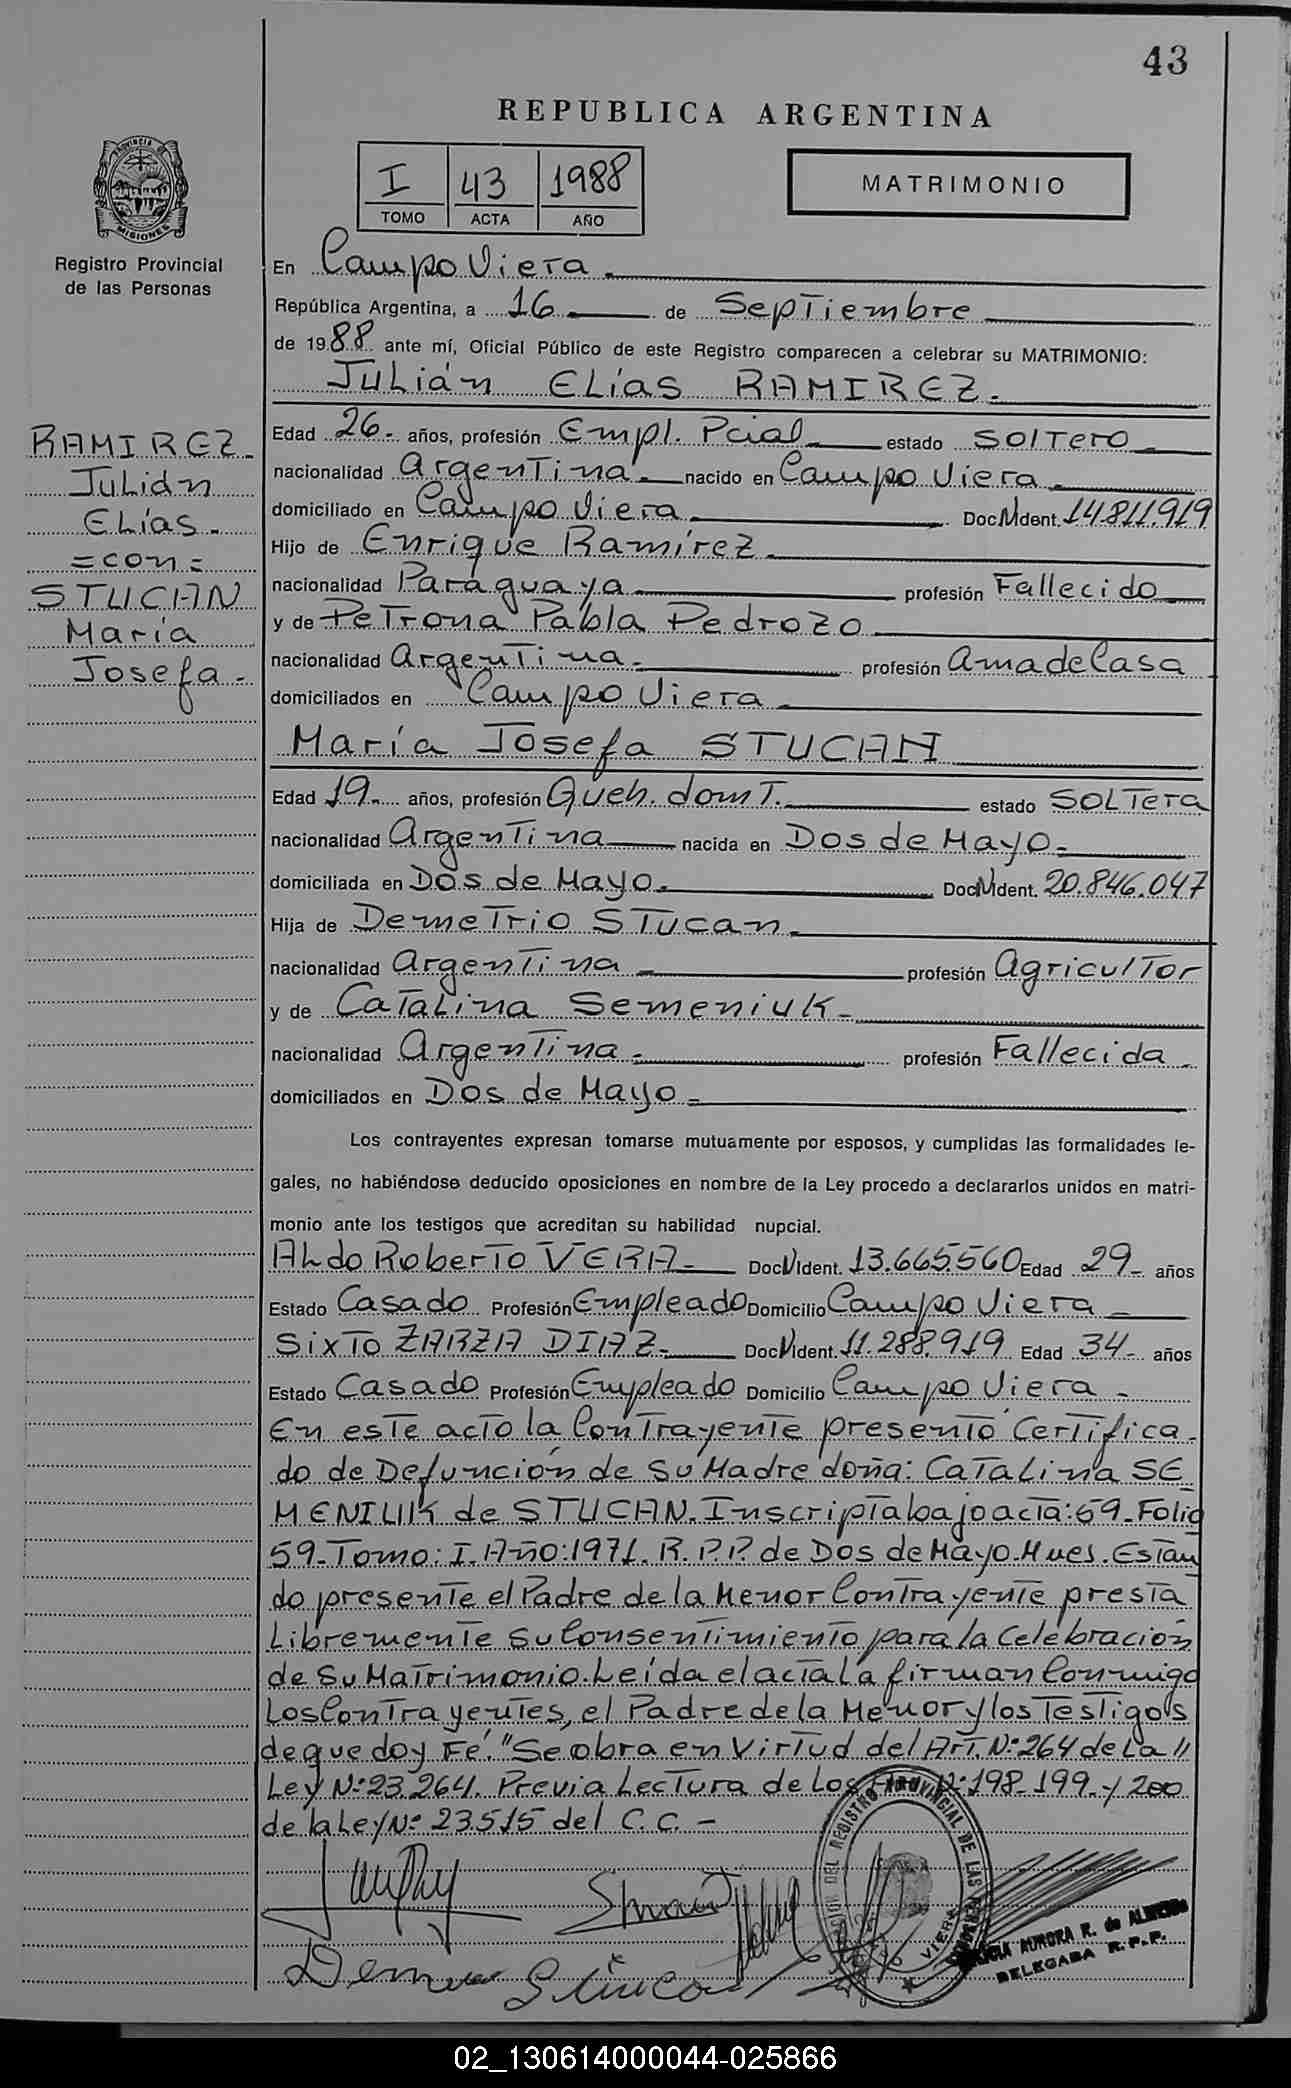 43
REPUBLICA ARGENTINA
I 43 1988
TOMO ACTA AÑO
MATRIMONIO
Provincia de
MISIONES
Registro Provincial
de las Personas
RAMIREZ-
Julián
Elías-
=con=
STUCAN
María
Josefa-
En Campo Viera-
República Argentina, a 16 de Septiembre
de 1988 ante mí, Oficial Público de este Registro comparecen a celebrar su MATRIMONIO:
Julián Elías RAMIREZ-
Edad 26- años, profesión Empl. Pcial estado Soltero-
nacionalidad Argentina- nacido en Campo Viera-
domiciliado en Campo Viera Doc N Ident. 14.811.919
Hijo de Enrique Ramírez-
nacionalidad Paraguaya profesión Fallecido
y de Petrona Pabla Pedrozo
nacionalidad Argentina- profesión Ama de Casa
domiciliados en Campo Viera-
María Josefa STUCAN
Edad 19- años, profesión Queh. domt. estado Soltera
nacionalidad Argentina nacida en Dos de Mayo-
domiciliada en Dos de Mayo- Doc N Ident. 20.846.047
Hija de Demetrio Stucan-
nacionalidad Argentina profesión Agricultor
y de Catalina Semeniuk-
nacionalidad Argentina- profesión Fallecida-
domiciliados en Dos de Mayo-
Los contrayentes expresan tomarse mutuamente por esposos, y cumplidas las formalidades le-
gales, no habiéndose deducido oposiciones en nombre de la Ley procedo a declararlos unidos en matri-
monio ante los testigos que acreditan su habilidad nupcial.
Aldo Roberto VERA- Doc N Ident. 13.665.560 Edad 29- años
Estado Casado Profesión Empleado Domicilio Campo Viera-
Sixto ZARZA DIAZ- Doc N Ident. 11.288.919 Edad 34- años
Estado Casado Profesión Empleado Domicilio Campo Viera-
En este acto la Contrayente presentó Certifica-
do de Defunción de su Madre doña: Catalina SE
MENIUK de STUCAN. Inscripta bajo acta: 59- Folio
59- Tomo: I. Año: 1971. R.P.P. de Dos de Mayo. Mnes. Estan
do presente el Padre de la Menor Contrayente presta
Libremente su Consentimiento para la Celebración
de su Matrimonio. Leída el acta la firman Conmigo
Los Contrayentes, el Padre de la Menor y los Testigos
de que doy Fé. "Se obra en Virtud del Art. Nº 264 de la //
Ley Nº 23.264. Previa Lectura de Los Nº 198-199- y 200
de la Ley Nº 23515 del C.C.-
DEL REGISTRO PROVINCIAL DE LAS PERSONAS
VIERA
AURORA R. de ALMEIDA
DELEGADA R.P.P.
02_130614000044-025866